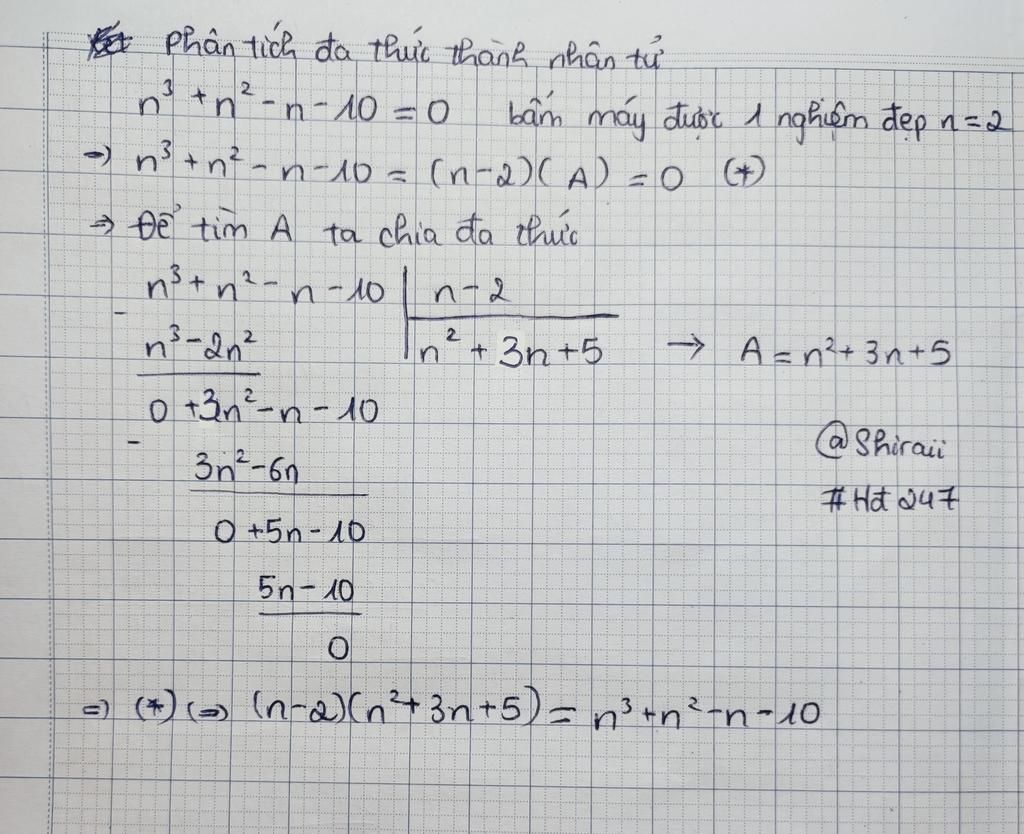 phân tích đa thức thành nhân tử
n³ + n² - n - 10 = 0 bấm máy được 1 nghiệm đẹp n = 2
→ n³ + n² - n - 10 = (n-2)( A ) = 0 (*)
→ Để tìm A ta chia đa thức
n³ + n² - n - 10 | n - 2
-
n³ - 2n² | n² + 3n + 5 → A = n² + 3n + 5
0 + 3n² - n - 10
-
3n² - 6n
0 + 5n - 10
5n - 10
0
@Shiraii
#Hđ 247
⇒ (*) ⇔ (n-2)(n² + 3n + 5) = n³ + n² - n - 10